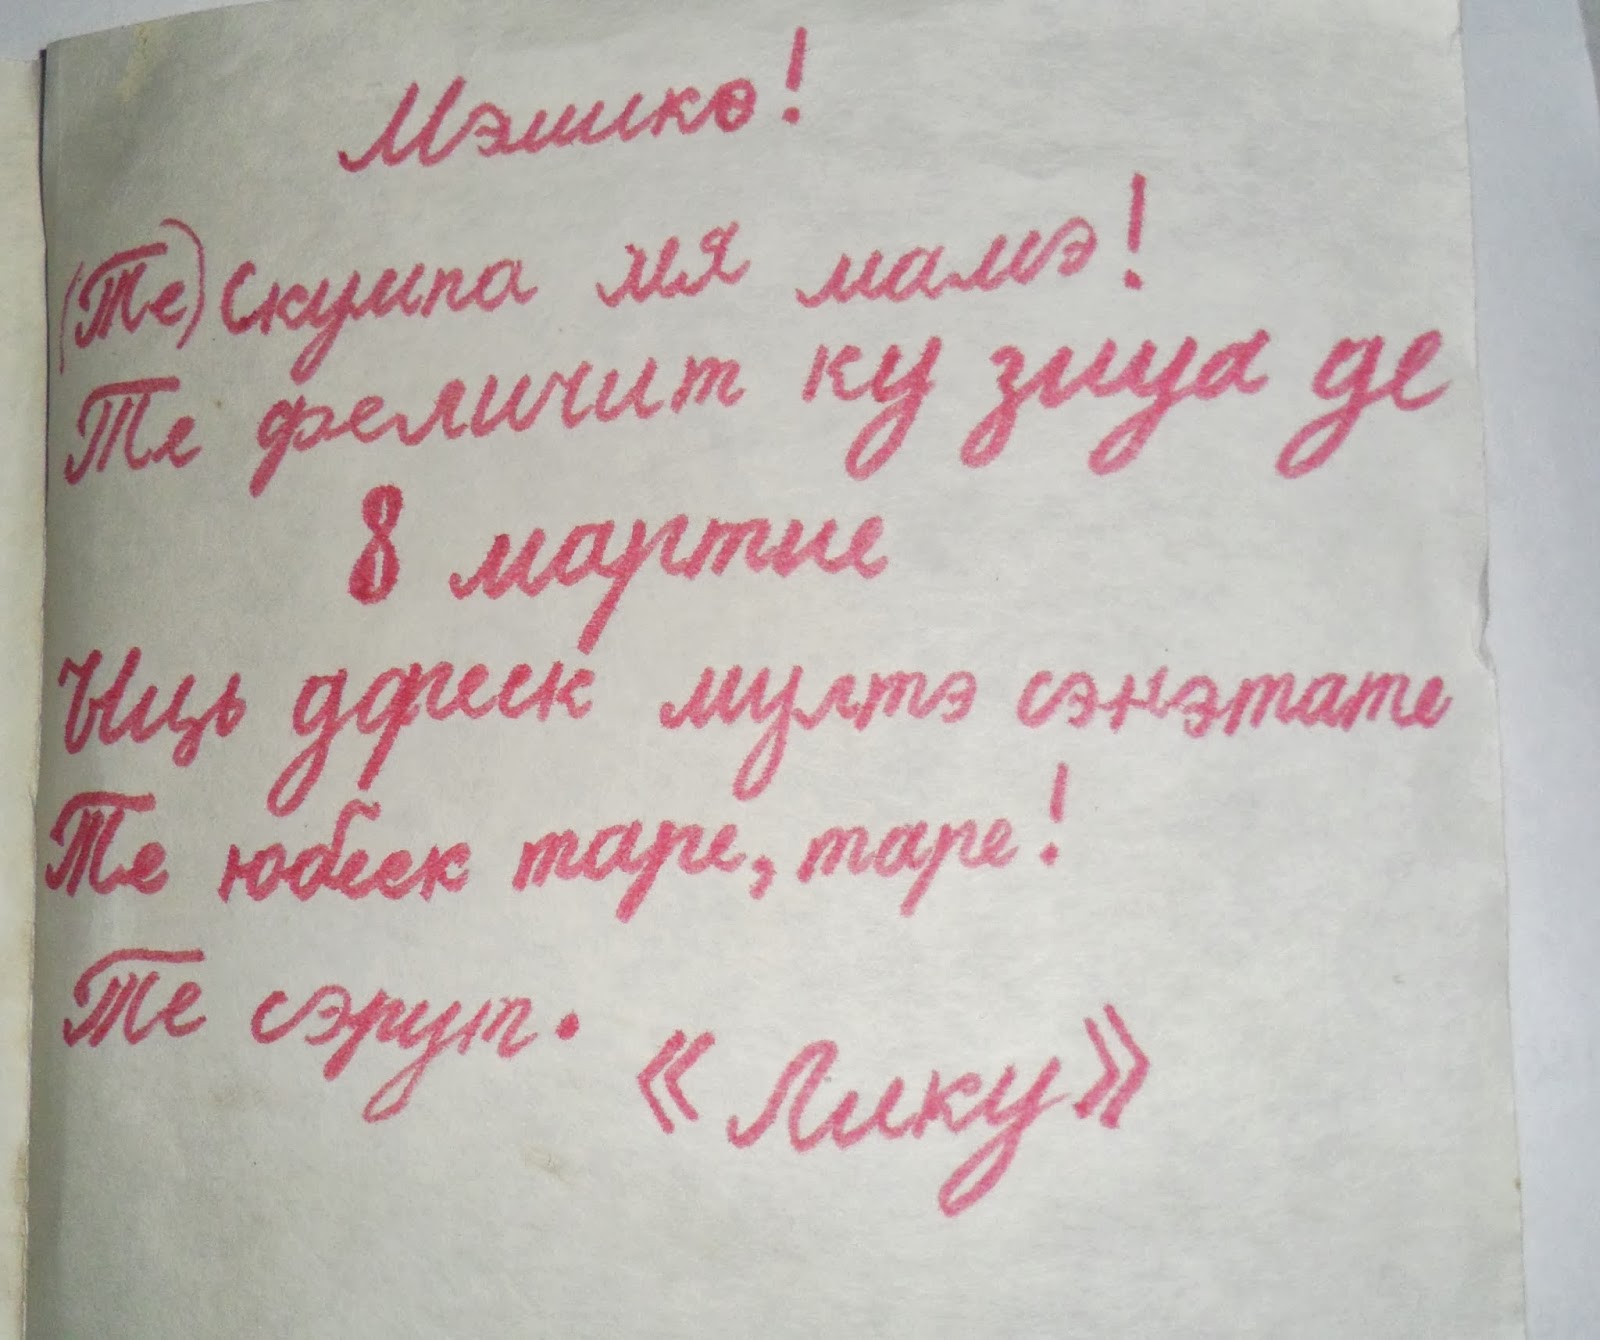 Мэмико!
(Те) Скумпа мя мамэ!
Те феличит ку зиуа де
8 мартие
Ыць дореск мултэ сэнэтате
Те юбеск таре, таре!
Те сэрут.
«Лику»